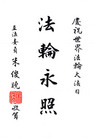 慶祝世界法輪大法日
法輪永照
立法委員
朱俊曉
敬賀